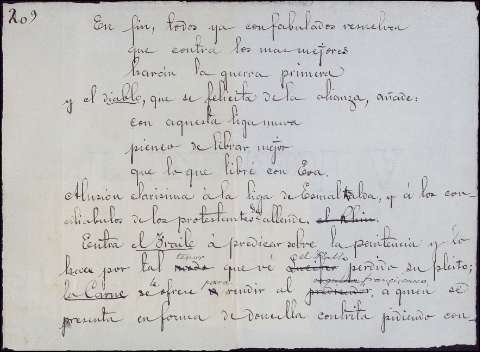 209
En fin, todos ya confabulados resuelven
que contra los mas mejores
harán la guerra primera
y el diablo, que se felicita de la alianza, añade:
con aquesta liga nueva
pienso de librar mejor
que lo que libré con Eva.
Alusión clarisima á la liga de Esmalkalda, y á los con-
ciliabulos de los protestantes de allende el Rhin.
Entra el Fraile á predicar sobre la penitencia y lo
tenor el Diablo
hace por tal modo que vé perdido su pleito;
para franciscano
la Carne se le ofrece á rendir al predicador, a quien se
presenta en forma de doncella contrita pidiendo con-